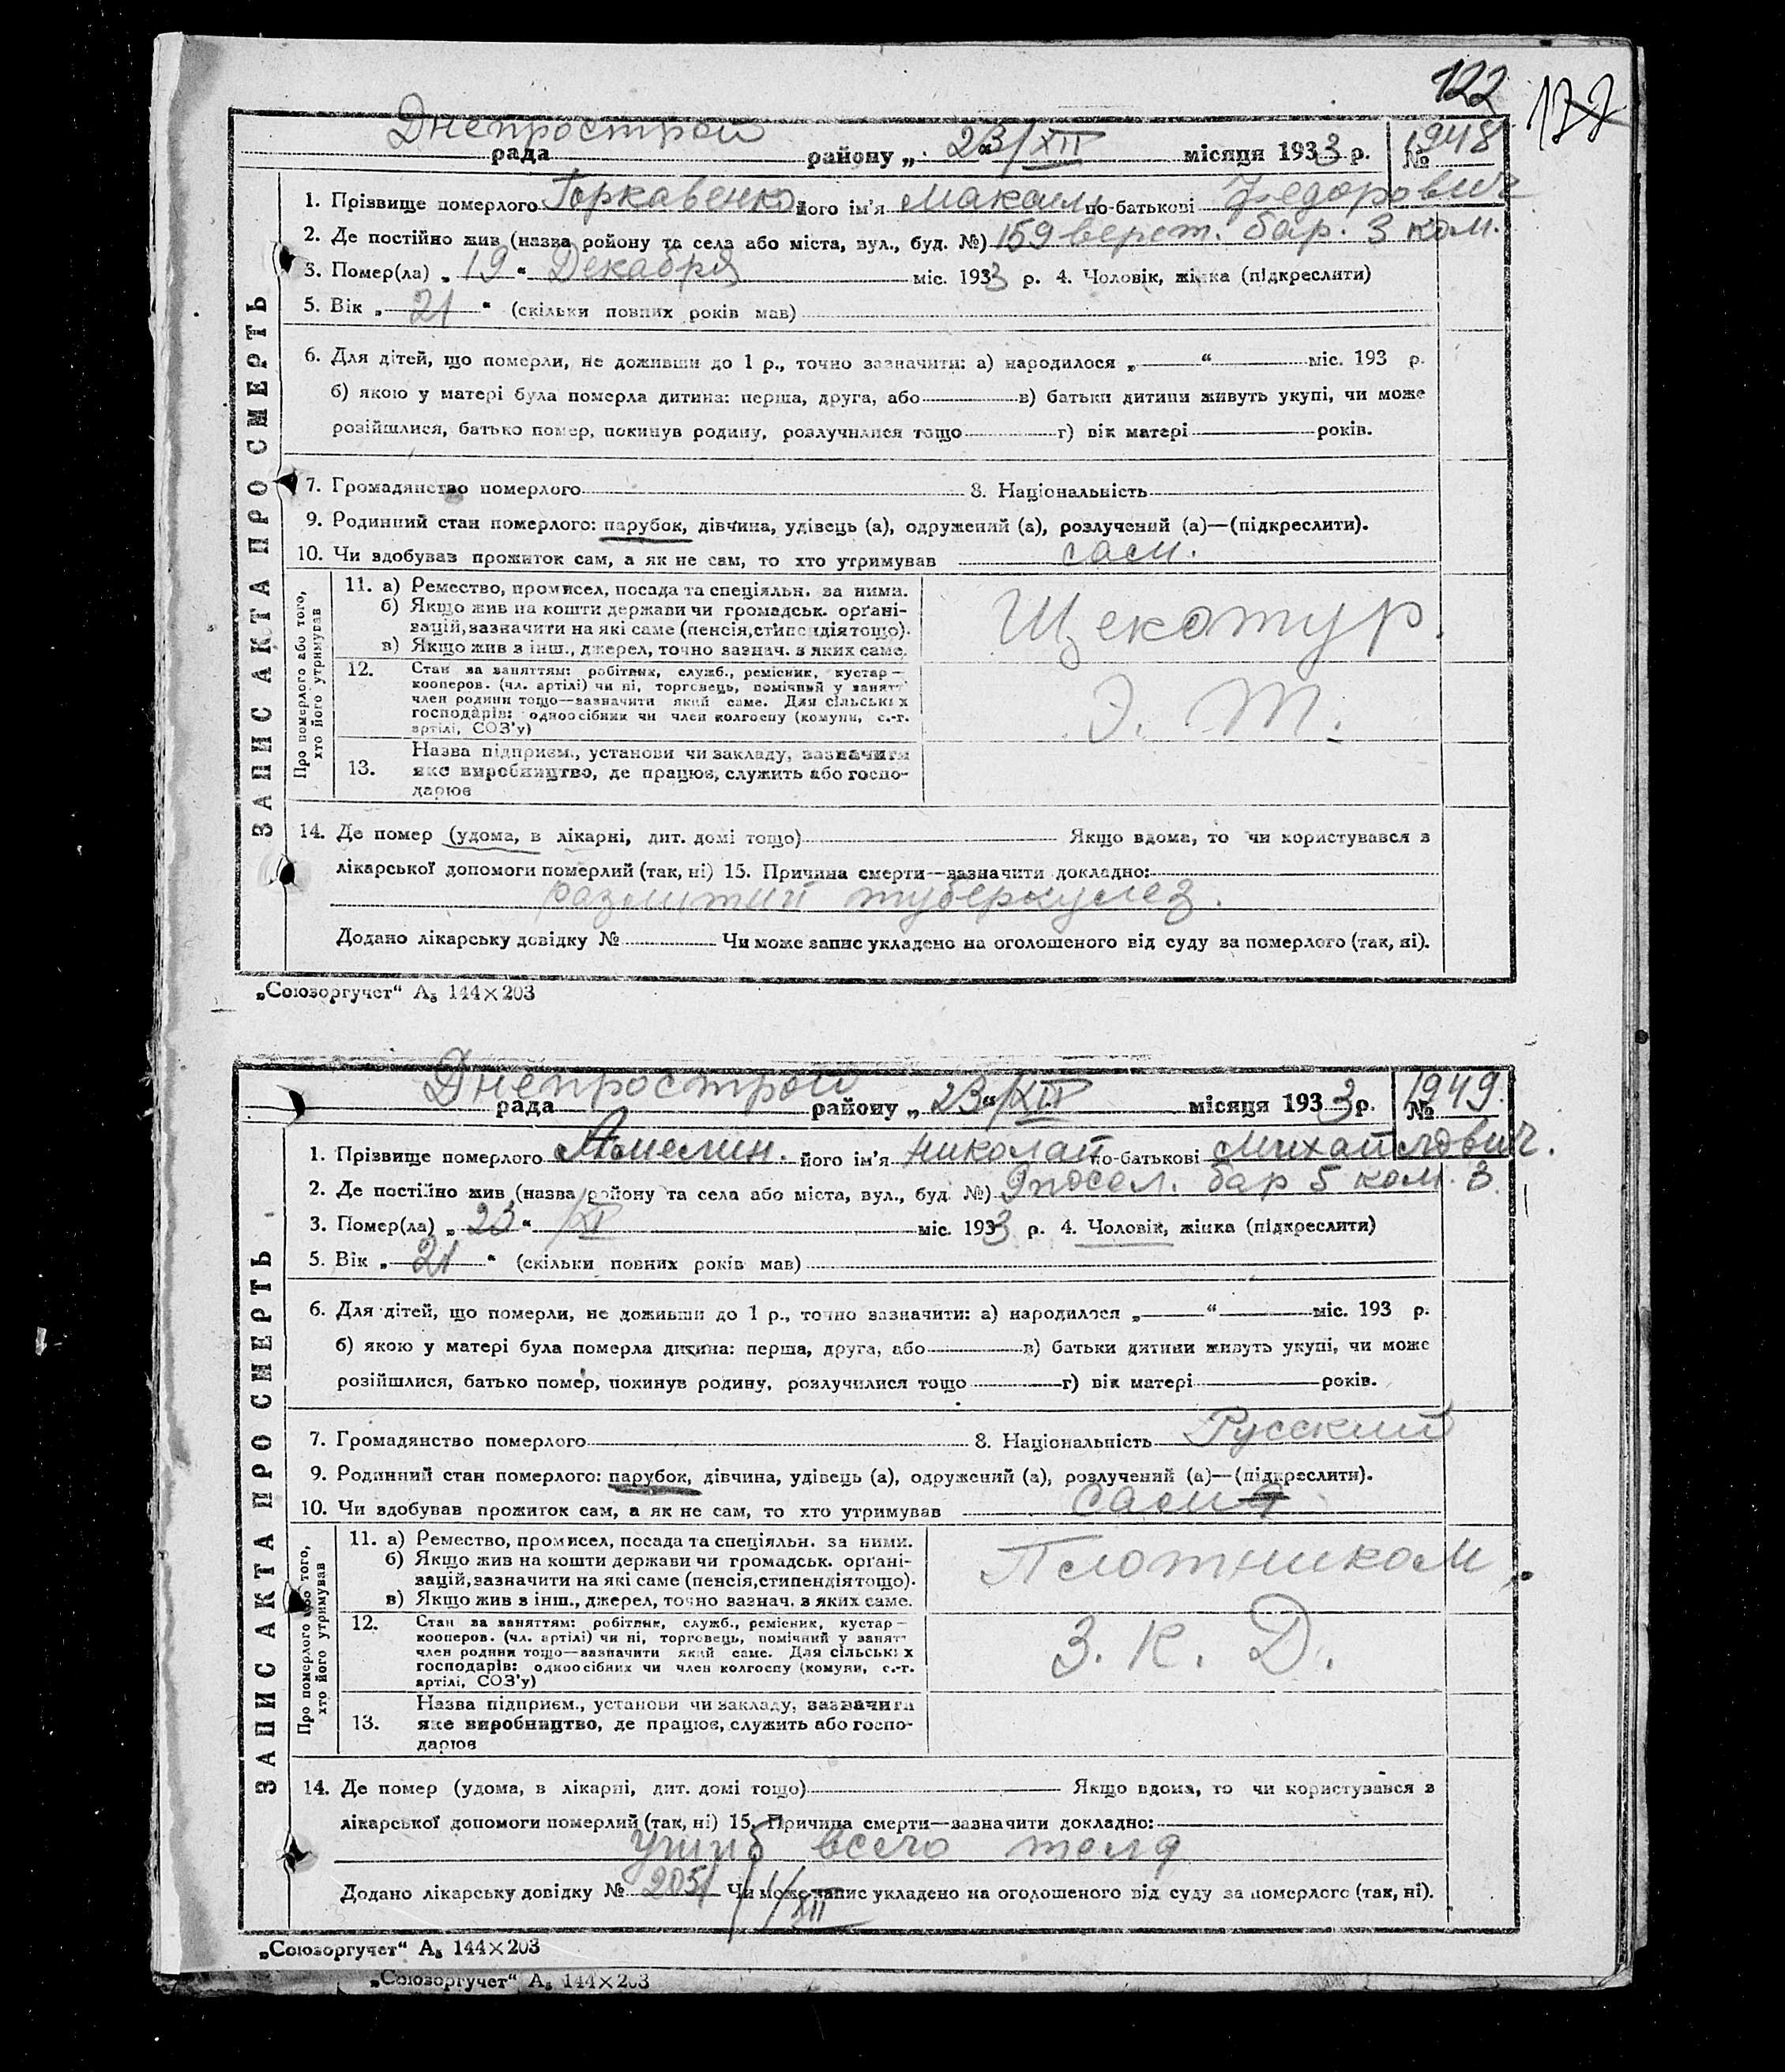 122
Днепрострой
рада району „ 23/XII місяця 1933 р. № 1948
1. Прізвище померлого Горкавенко його ім'я Максим по-батькові Федорович
2. Де постійно жив (назва ройону та села або міста, вул., буд. №) 159 верст. бар. 3 ком.
3. Помер(ла) „ 19 “ Декабря міс. 1933 р. 4. Чоловік, жінка (підкреслити)
5. Вік „ 21 “ (скільки повних років мав)
6. Для дітей, що померли, не доживши до 1 р., точно зазначити: а) народилося „ “ міс. 193 р.
б) якою у матері була померла дитина: перша, друга, або в) батьки дитини живуть укупі, чи може
розійшлися, батько помер, покинув родину, розлучилися тощо г) вік матері років.
7. Громадянство померлого 8. Національність
9. Родинний стан померлого: парубок, дівчина, удівець (а), одружений (а), розлучений (а)—(підкреслити).
10. Чи здобував прожиток сам, а як не сам, то хто утримував сам.
ЗАПИС АКТА ПРО СМЕРТЬ
Про померлого або того, хто його утримував
11. а) Ремество, промисел, посада та спеціяльн. за ними.
б) Якщо жив на кошти держави чи громадськ. орґані-
зацій, зазначити на які саме (пенсія, стипендія тощо).
в) Якщо жив з інш., джерел, точно зазнач. з яких саме.
Щекотур.
12. Стан за заняттям: робітник, служб., ремісник, кустар—
кооперов. (чл. артілі) чи ні, торговець, помічний у занятт
член родини тощо—зазначити який саме. Для сільських
господарів: одноосібник чи член колгоспу (комуни, с.-г.
артілі, СОЗ'у)
Э. Т.
13. Назва підприєм., установи чи закладу, зазначити
яке виробництво, де працює, служить або госпо-
дарює
14. Де помер (удома, в лікарні, дит. домі тощо) Якщо вдома, то чи користувався з
лікарської допомоги померлий (так, ні) 15. Причина смерти—зазначити докладно:
туберкулез.
Додано лікарську довідку № Чи може запис укладено на оголошеного від суду за померлого (так, ні).
„Союзоргучет“ А₅ 144×203
Днепрострой
рада району „ 23“/XII місяця 1933 р. № 1949.
1. Прізвище померлого Амелин. його ім'я Николай по-батькові Михайлович.
2. Де постійно жив (назва ройону та села або міста, вул., буд. №) посел. бар 5 ком. 3.
3. Помер(ла) „ 23 “ /XI міс. 1933 р. 4. Чоловік, жінка (підкреслити)
5. Вік „ 21 “ (скільки повних років мав)
6. Для дітей, що померли, не доживши до 1 р., точно зазначити: а) народилося „ “ міс. 193 р.
б) якою у матері була померла дитина: перша, друга, або в) батьки дитини живуть укупі, чи може
розійшлися, батько помер, покинув родину, розлучилися тощо г) вік матері років.
7. Громадянство померлого 8. Національність Русский
9. Родинний стан померлого: парубок, дівчина, удівець (а), одружений (а), розлучений (а)—(підкреслити).
10. Чи здобував прожиток сам, а як не сам, то хто утримував сам
ЗАПИС АКТА ПРО СМЕРТЬ
Про померлого або того, хто його утримував
11. а) Ремество, промисел, посада та спеціяльн. за ними.
б) Якщо жив на кошти держави чи громадськ. орґані-
зацій, зазначити на які саме (пенсія, стипендія тощо).
в) Якщо жив з інш., джерел, точно зазнач. з яких саме.
Плотником.
12. Стан за заняттям: робітник, служб., ремісник, кустар—
кооперов. (чл. артілі) чи ні, торговець, помічний у занятт
член родини тощо—зазначити який саме. Для сільських
господарів: одноосібник чи член колгоспу (комуни, с.-г.
артілі, СОЗ'у)
З. К. Д.
13. Назва підприєм., установи чи закладу, зазначити
яке виробництво, де працює, служить або госпо-
дарює
14. Де помер (удома, в лікарні, дит. домі тощо) Якщо вдома, то чи користувався з
лікарської допомоги померлий (так, ні) 15. Причина смерти—зазначити докладно:
ушиб всего тела
Додано лікарську довідку № 2051 1/XII Чи може запис укладено на оголошеного від суду за померлого (так, ні).
„Союзоргучет“ А₅ 144×203
„Союзоргучет“ А₅ 144×203